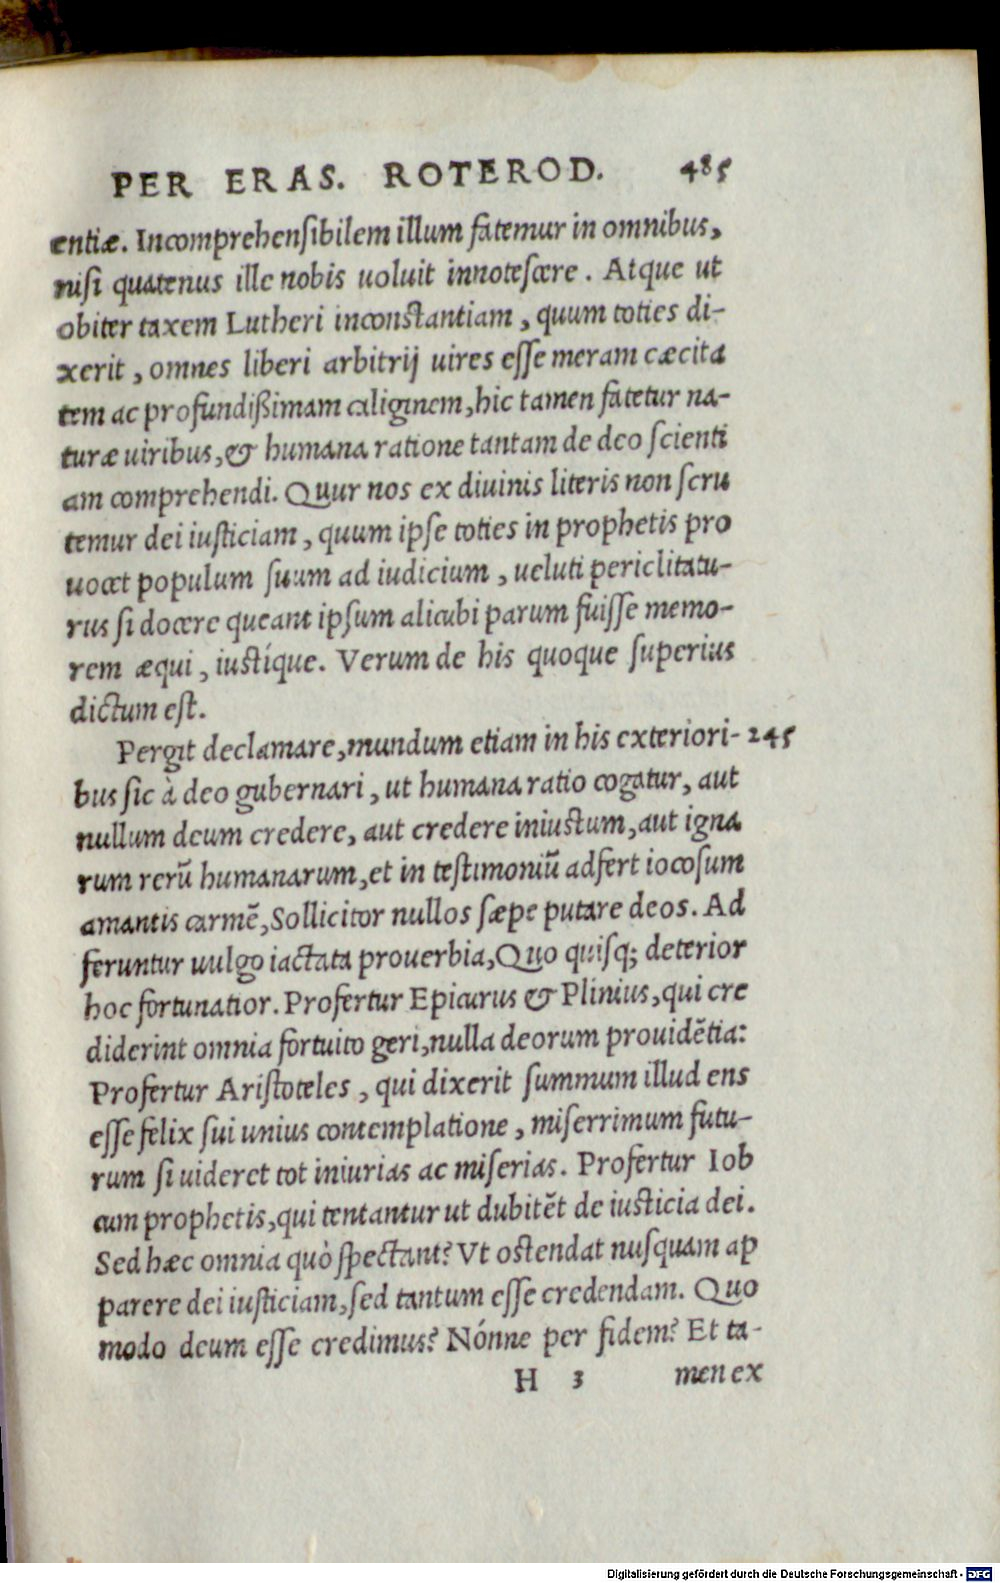 PER ERAS. ROTEROD. 485
entiæ. Incomprehensibilem illum fatemur in omnibus,
nisi quatenus ille nobis uoluit innotescere. Atque ut
obiter taxem Lutheri inconstantiam, quum toties di-
xerit, omnes liberi arbitrij uires esse meram cæcita
tem ac profundißimam caliginem, hic tamen fatetur na-
turæ uiribus, & humana ratione tantam de deo scienti
am comprehendi. Quur nos ex diuinis literis non scru
temur dei iusticiam, quum ipse toties in prophetis pro
uocet populum suum ad iudicium, ueluti periclitatu-
rus si docere queant ipsum alicubi parum fuisse memo-
rem æqui, iustíque. Verum de his quoque superius
dictum est.
Pergit declamare, mundum etiam in his exteriori- 245
bus sic à deo gubernari, ut humana ratio cogatur, aut
nullum deum credere, aut credere iniustum, aut igna
rum rerũ humanarum, et in testimoniũ adfert iocosum
amantis carmẽ, Sollicitor nullos sæpe putare deos. Ad
feruntur uulgo iactata prouerbia, Quo quisq; deterior
hoc fortunatior. Profertur Epicurus & Plinius, qui cre
diderint omnia fortuito geri, nulla deorum prouidẽtia:
Profertur Aristoteles, qui dixerit summum illud ens
esse felix sui unius contemplatione, miserrimum futu-
rum si uideret tot iniurias ac miserias. Profertur Iob
cum prophetis, qui tentantur ut dubitẽt de iusticia dei.
Sed hæc omnia quò spectant? Vt ostendat nusquam ap
parere dei iusticiam, sed tantum esse credendam. Quo
modo deum esse credimus? Nónne per fidem? Et ta-
H 3 men ex
Digitalisierung gefördert durch die Deutsche Forschungsgemeinschaft - DFG